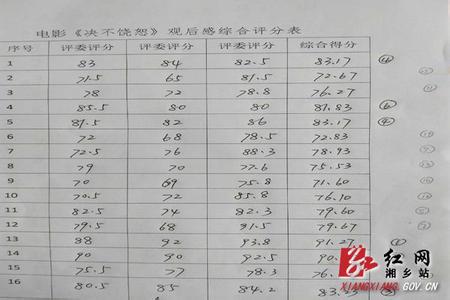 电影《决不饶恕》观后感综合评分表
序号 评委评分 评委评分 评委评分 综合得分
1 83 84 82.5 83.17 ④
2 71.5 65 81.5 72.67
3 78 72 78.8 76.27
4 85.5 80 80 81.83 ⑥
5 81.5 82 86 83.17 ④
6 72 68 78.5 72.83
7 72.5 76 88.3 78.93
8 79 70 77.6 75.53
9 70 69 75.8 71.60
10 70.5 72 85.8 76.10
11 82.5 74 82.3 79.60
12 79.5 68 91.5 79.67
13 88 92 93.8 91.27 ①
14 90 90 92.5 90.
15 75.5 77 78.3 76.
16 80.5 85 84.2 83.23 ③
红网
湘乡站
XIANGXIANG.GOV.CN